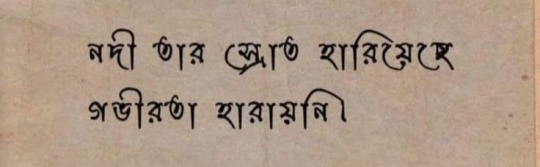 নদী তার স্রোত হারিয়েছে
গভীরতা হারায়নি।